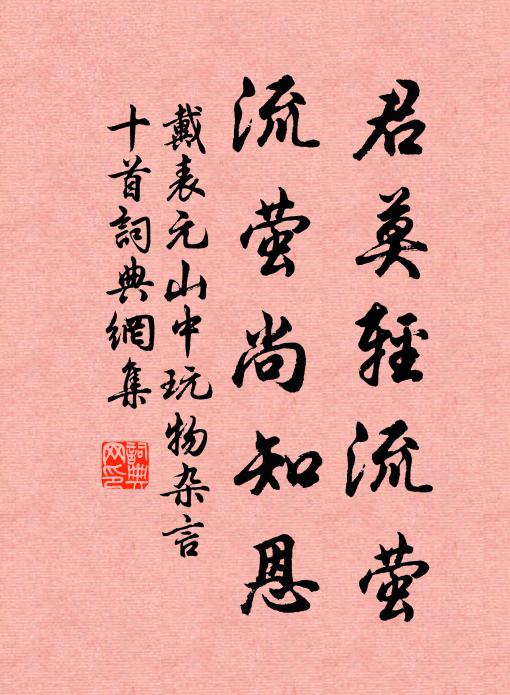 君莫輕流萤
流萤尚知恩
戴表元山中玩物杂言
十首詞典網集
詞典
网印